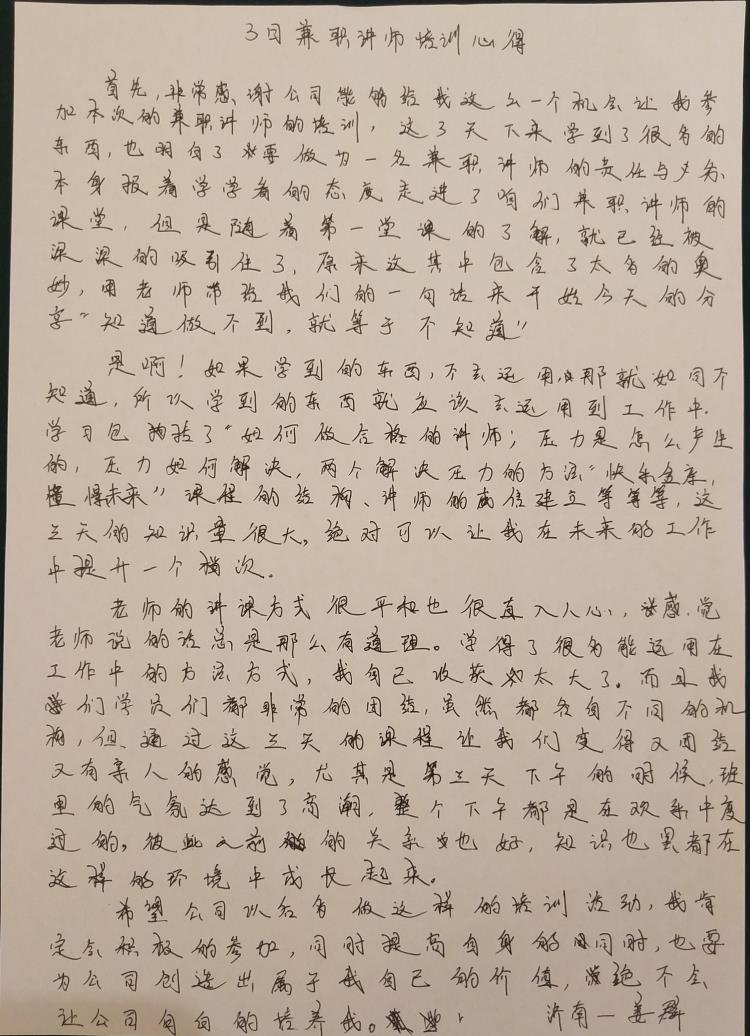 3日兼职讲师培训心得
首先,非常感谢公司能够给我这么一个机会让我参
加本次的兼职讲师的培训,这3天下来学到了很多的
东西,也明白了要做为一名兼职讲师的责任与义务
本身报着学学看的态度走进了咱们兼职讲师的
课堂,但是随着第一堂课的了解,就已经被
深深的吸引住了,原来这其中包含了太多的奥
妙,用老师带给我们的一句话来开始今天的分
享“知道做不到,就等于不知道”
是啊!如果学到的东西,不去运用,那就如同不
知道,所以学到的东西就应该去运用到工作中.
学习包括了“如何做合格的讲师;压力是怎么产生
的,压力如何解决,两个解决压力的方法“快乐
懂得未来”课程的结构、讲师的威信建立等等等,这
三天的知识量很大。绝对可以让我在未来的工作
中提升一个档次。
老师的讲课方式很平和也很直入人心,感觉
老师说的话总是那么有道理。学得了很多能运用在
工作中的方法方式,我自己收获太大了。而且我
们学员们都非常的团结,虽然都各自不同的机
构,但、通过这三天的课程让我们变得又团结
又有亲人的感觉,尤其是第三天下午的时候,班
里的气氛达到了高潮,整个下午都是在欢乐中度
过的。彼此之前的关系也好,知识也罢都在
这样的环境中成长起来。
希望公司以后多做这样的培训活动,我肯
定会积极的参加,同时提高自身的同时,也要
为公司创造出属于我自己的价值,绝不会
让公司白白的培养我。
济南—姜